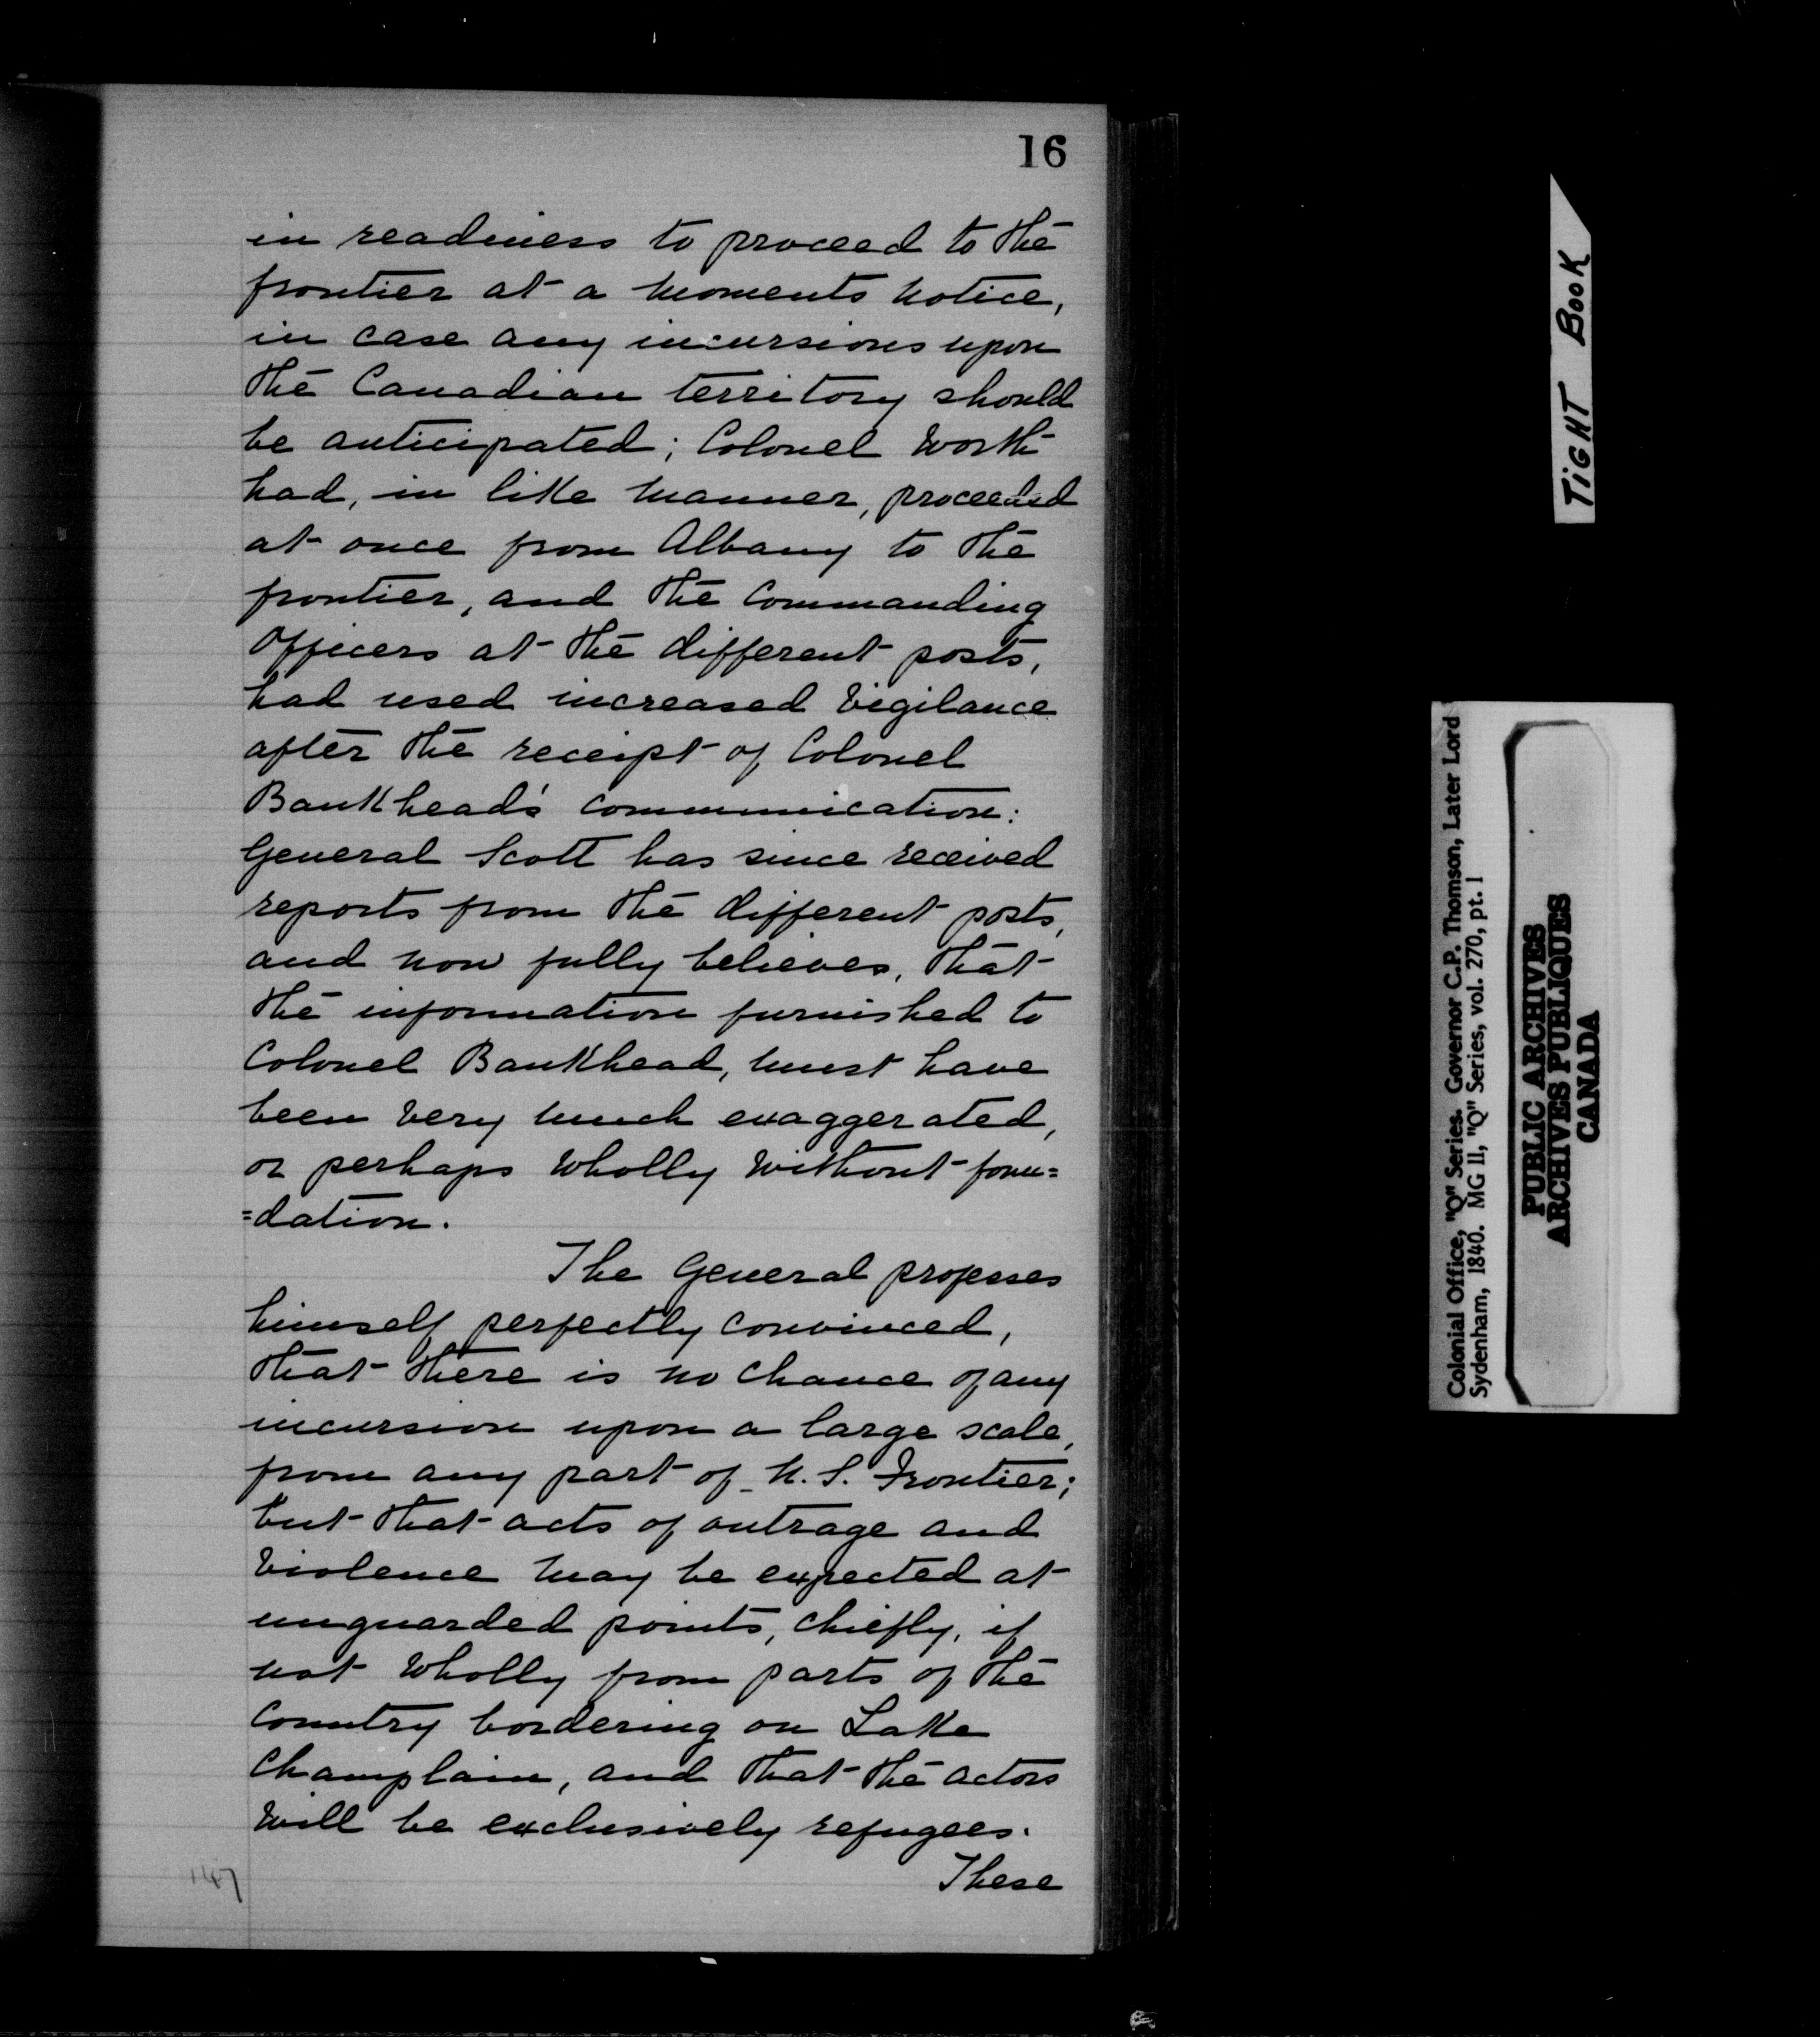 16
in readiness to proceed to the
frontier at a moments notice,
in case any incursions upon
the Canadian territory should
be anticipated; Colonel Worth
had, in like manner, proceeded
at once from Albany to the
frontier, and the Commanding
Officers at the different posts,
had used increased vigilance
after the receipt of Colonel
Bankhead's communication:
General Scott has since received
reports from the different posts,
and now fully believes, that
the information furnished to
Colonel Bankhead, must have
been very much exaggerated,
or perhaps wholly without foun=
=dation.
The General professes
himself perfectly convinced,
that there is no chance of any
incursion upon a large scale,
from any part of U.S. Frontier;
but that acts of outrage and
violence may be expected at
unguarded points, chiefly, if
not wholly from parts of the
Country bordering on Lake
Champlain, and that the actors
will be exclusively refugees.
These
147
TIGHT BOOK
Colonial Office, "Q" Series. Governor C.P. Thomson, Later Lord
Sydenham, 1840. MG 11, "Q" Series, vol. 270, pt. 1
PUBLIC ARCHIVES
ARCHIVES PUBLIQUES
CANADA